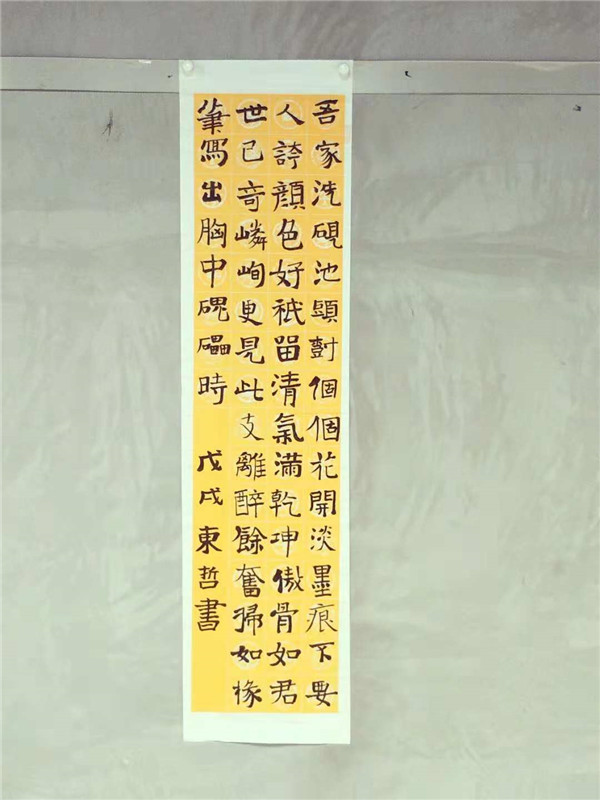 吾家洗硯池頭尌個個花開淡墨痕不要
人誇顔色好祇留清氣滿乾坤傲骨如君
世已奇嶙峋更見此支離醉餘奮掃如椽
筆寫出胸中磈礧時 戊戌東哲書